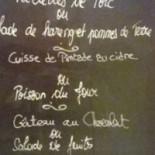 de Porc
ou
de Hareng et pommes de Terre
Cuisse de Pintade au cidre
ou
Poisson du jour
Gâteau au Chocolat
ou
Salade de fruits